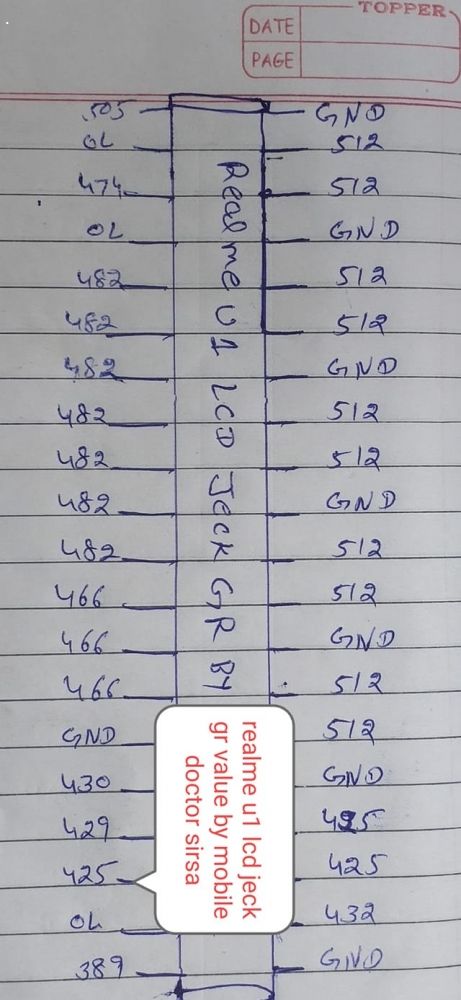 TOPPER
DATE
PAGE
.505 GND
OL 512
474 512
OL GND
482 512
482 512
482 GND
482 512
482 512
482 GND
482 512
466 512
466 GND
466 512
GND 512
430 GND
429 425
425 425
OL 432
389 GND
Realme U1 LCD Jeck GR By
realme u1 lcd jeck
gr value by mobile
doctor sirsa